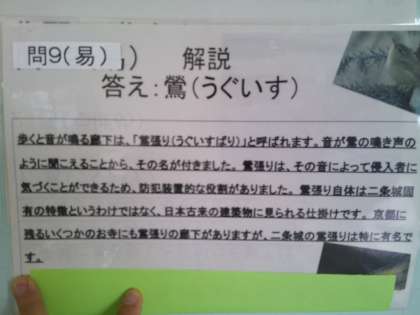 問9(易)
解説
答え:鶯(うぐいす)
歩くと音が鳴る廊下は、「鴬張り(うぐいすばり)」と呼ばれます。音が鶯の鳴き声の
ように聞こえることから、その名が付きました。鴬張りは、その音によって侵入者に
気づくことができるため、防犯装置的な役割がありました。鴬張り自体は二条城固
有の特徴というわけではなく、日本古来の建築物に見られる仕掛けです。京都に
残るいくつかのお寺にも鴬張りの廊下がありますが、二条城の鴬張りは特に有名で
す。